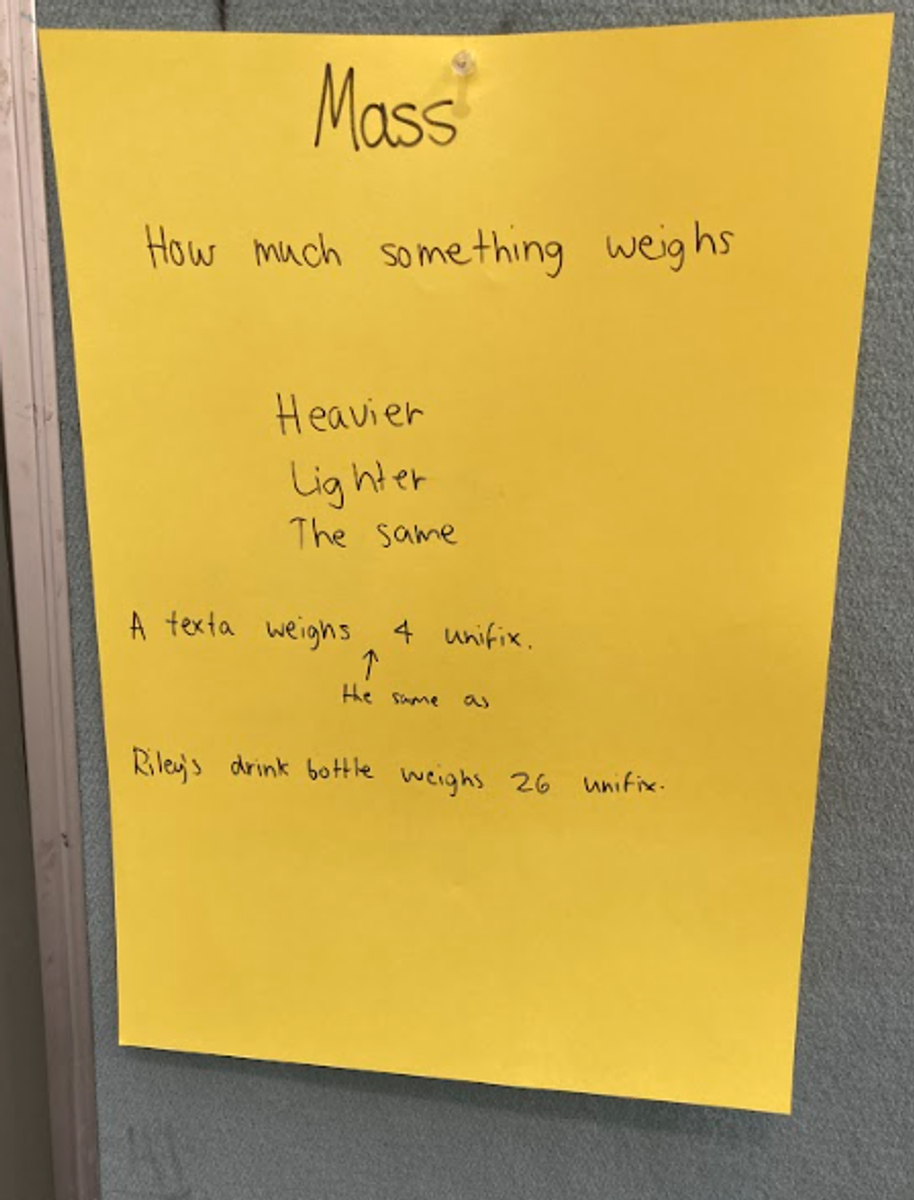 Mass
How much something weighs
Heavier
Lighter
The same
A texta weighs 4 unifix.
↑
the same as
Riley's drink bottle weighs 26 unifix.